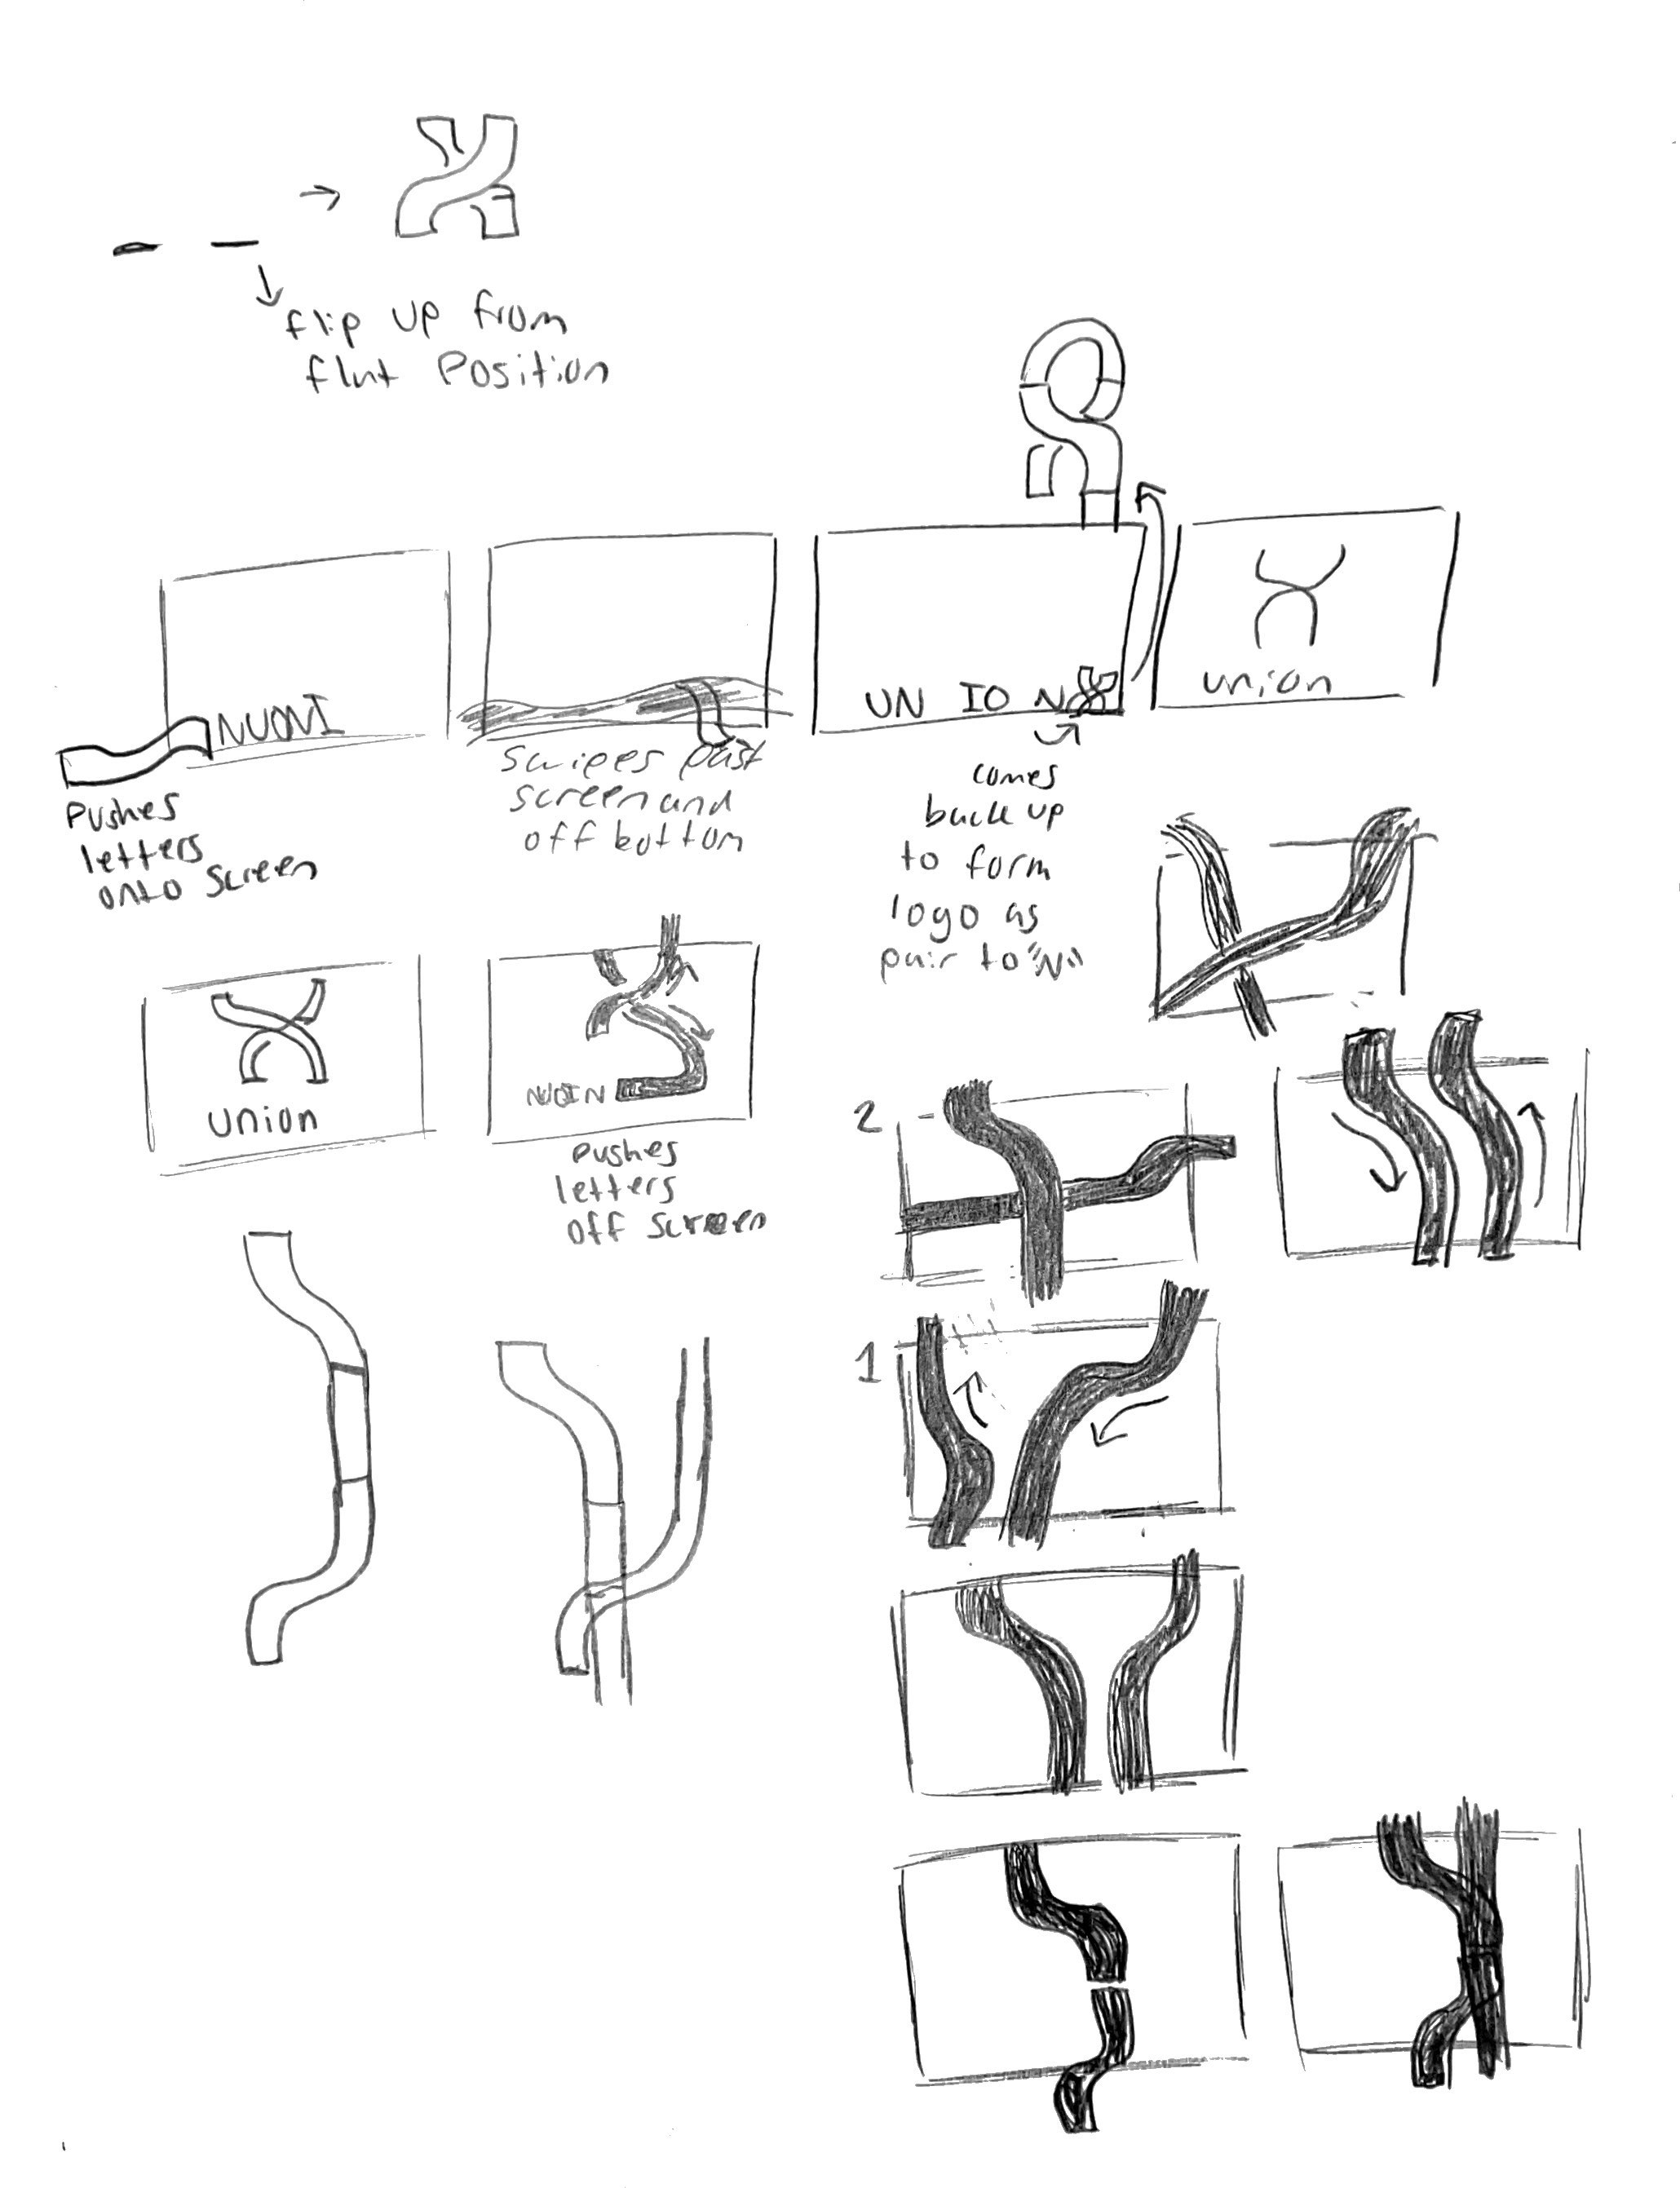 flip up from
flat Position
NUONI
UN IO N
union
Pushes
letters
onto Screen
Swipes past
screen and
off bottom
comes
back up
to form
logo as
pair to "N"
union
NUOIN
Pushes
letters
off screen
2
1